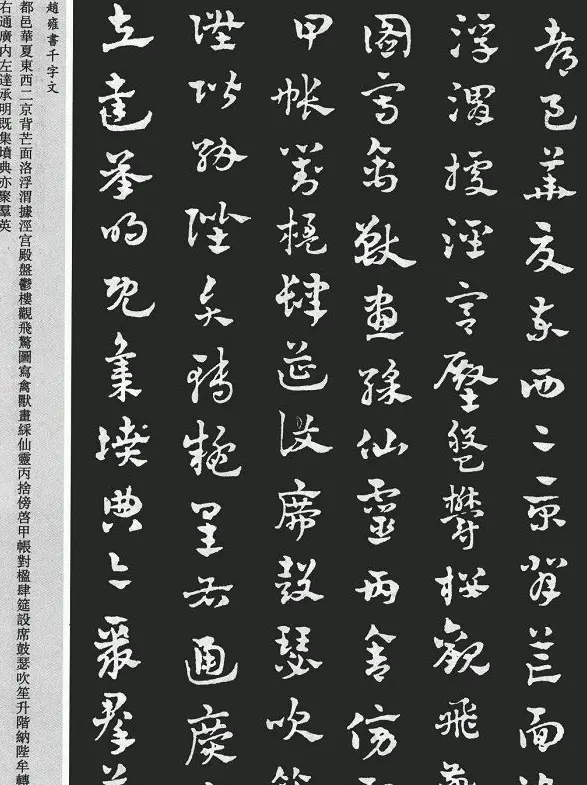 都邑華夏東西二京背芒面洛
浮渭據涇宮殿盤鬱樓觀飛驚
圖寫禽獸畫綵仙靈丙舍傍啓
甲帳對楹肆筵設席鼓瑟吹笙
陞階納陛弁轉疑星右通廣
左達承明既集墳典亦聚群英
趙雍書千字文
都邑華夏東西二京背芒面洛浮渭據涇宮殿盤鬱樓觀飛驚圖寫禽獸畫綵仙靈丙捨傍啓甲帳對楹肆筵設席鼓瑟吹笙升階納陛牟轉
右通廣内左達承明既集墳典亦聚羣英